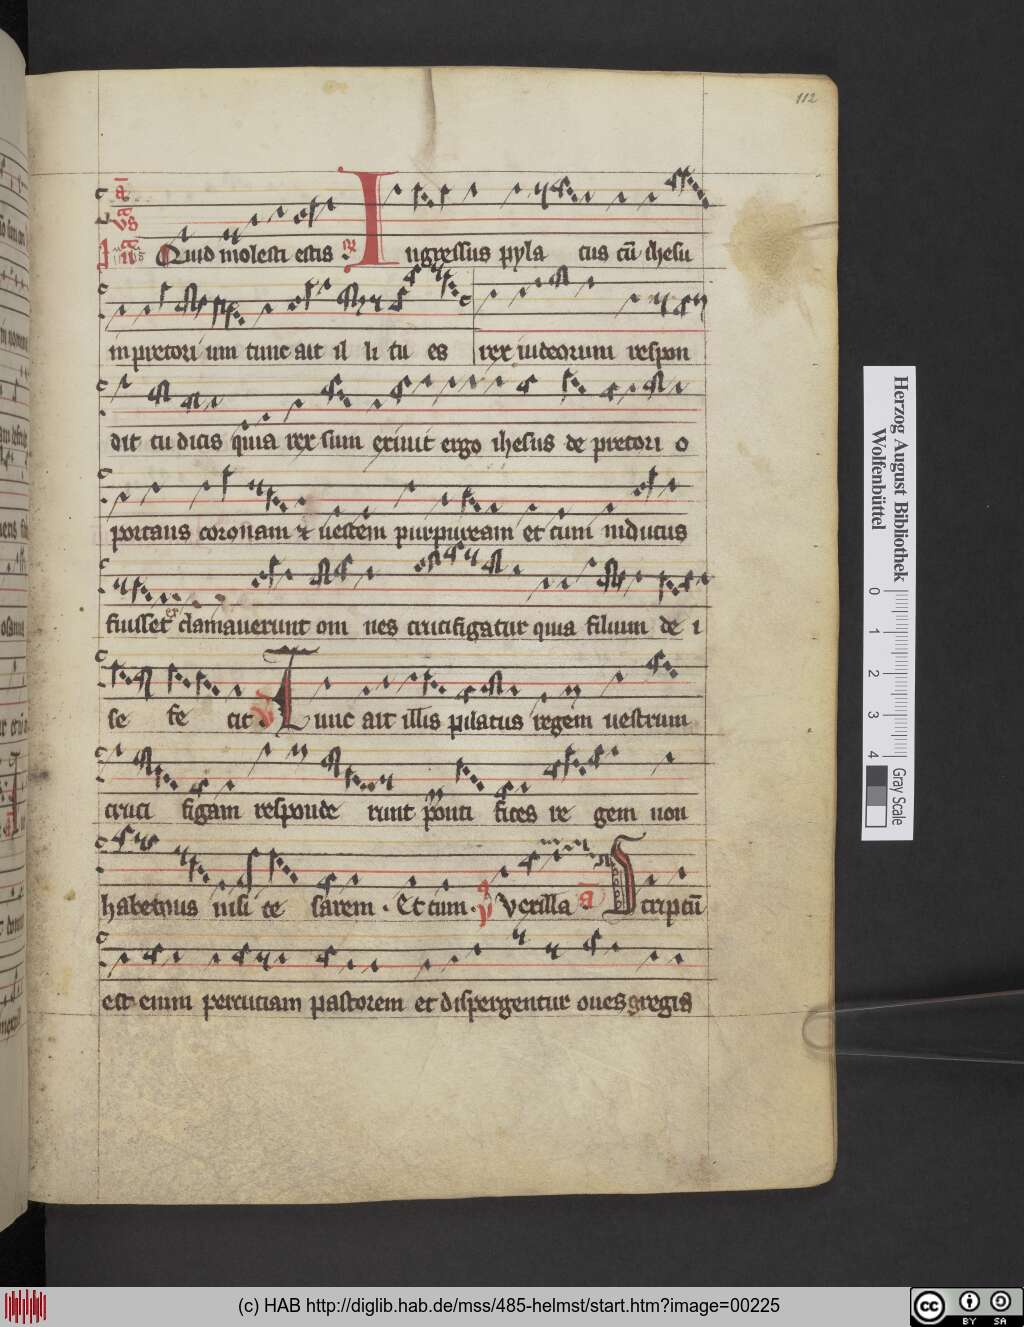 112
Quid molesti estis Ingressus pyla tus cū ihesu
in pretori um tunc ait il li tu es rex iudeorum respon
dit tu dicis quia rex sum exiuit ergo ihesus de pretori o
portans coronam et uestem purpuream et cum indutus
fuisset exclamauerunt om nes crucifigatur quia filium de i
se fe cit Tunc ait illis pilatus regem uestrum
cruci figam responde runt ponti fices re gem non
habemus nisi ce sarem . Et cum . V Vexilla a Scriptū
est enim percutiam pastorem et dispergentur oues gregis
Herzog August Bibliothek
Wolfenbüttel
0 1 2 3 4
Gray Scale
(c) HAB http://diglib.hab.de/mss/485-helmst/start.htm?image=00225
cc BY SA